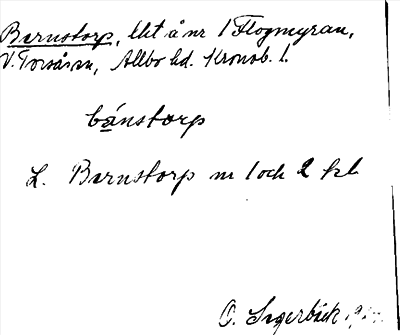 Bernstorp, lht å nr 1 Flogmyran,
V. Torsås sn, Allbo hd. Kronob. l.
bánstorp
L. Bernstorp nr 1 och 2 kb
O. Sagerbäck